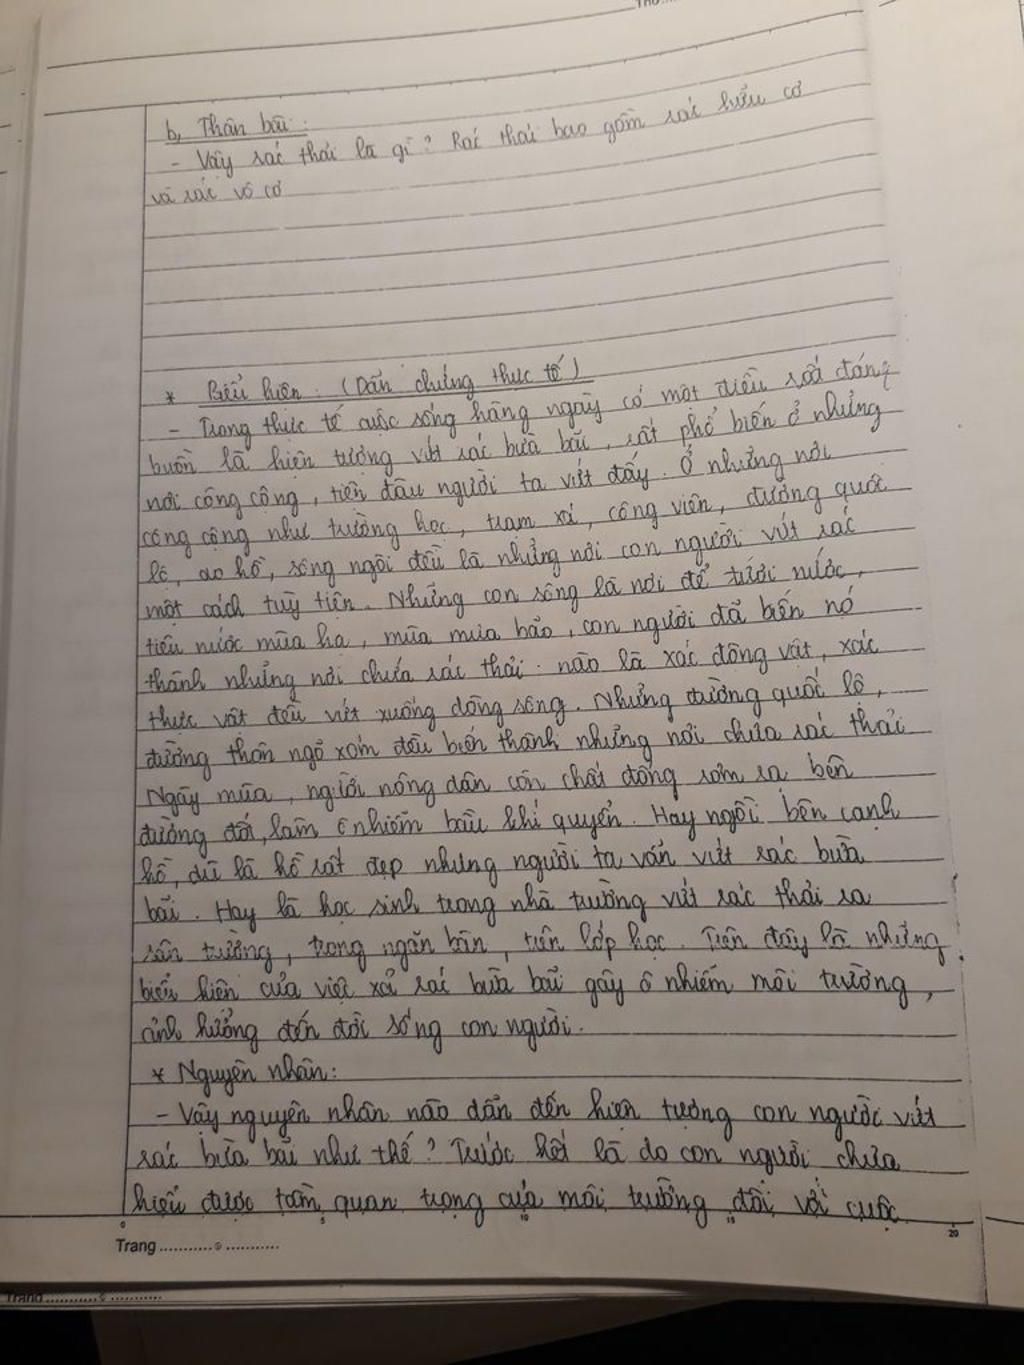 b, Thân bài:
- Vậy rác thải là gì? Rác thải bao gồm rác hữu cơ
và rác vô cơ
* Biểu hiện: (Dẫn chứng thực tế)
- Trong thực tế cuộc sống hằng ngày có một điều rất đáng
buồn là hiện tượng vứt rác bừa bãi, rất phổ biến ở những
nơi công cộng, tiện đâu người ta vứt đấy. Ở những nơi
công cộng như trường học, trạm xá, công viên, đường quốc
lộ, ao hồ, sông ngòi đều là những nơi con người vứt rác
một cách tuỳ tiện. Những con sông là nơi để tưới nước,
tiêu nước mùa hạ, mùa mưa bão, con người đã biến nó
thành những nơi chứa rác thải. nào là xác động vật, xác
thực vật đều vứt xuống dòng sông. Những đường quốc lộ,
đường thôn ngõ xóm đều biến thành những nơi chứa rác thải
Ngày mùa, người nông dân còn chất đống rơm rạ bên
đường đốt, làm ô nhiễm bầu khí quyển. Hay ngồi bên cạnh
hồ, dù là hồ rất đẹp nhưng người ta vẫn vứt rác bừa
bãi. Hay là học sinh trong nhà trường vứt rác thải ra
sân trường, trong ngăn bàn, trên lớp học. Trên đây là những
biểu hiện của việc xả rác bừa bãi gây ô nhiễm môi trường,
ảnh hưởng đến đời sống con người.
* Nguyên nhân:
- Vậy nguyên nhân nào dẫn đến hiện tượng con người vứt
rác bừa bãi như thế? Trước hết là do con người chưa
hiểu được tầm quan trọng của môi trường đối với cuộc
0 5 10 15 20
Trang
Trang